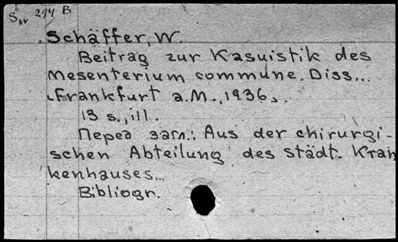 Sw 294 B
Schäffer, W.
Beitrag zur Kasuistik des
mesenterium commune. Diss...
Frankfurt a.M., 1936.
13 s., ill.
Перед загл.: Aus der chirurgi-
schen Abteilung des städt. Kran
kenhauses...
Bibliogr.